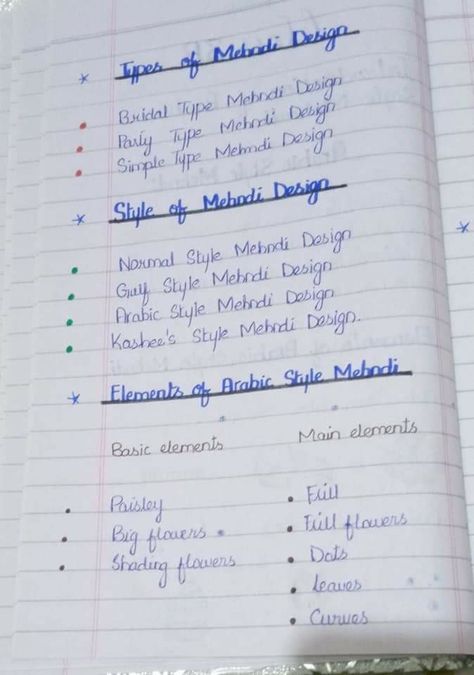 * Types of Mehndi Design
• Bridal Type Mehndi Design
• Party Type Mehndi Design
• Simple Type Mehndi Design
* Style of Mehndi Design
• Normal Style Mehndi Design
• Gulf Style Mehndi Design
• Arabic Style Mehndi Design
• Kashee's Style Mehndi Design.
* Elements of Arabic Style Mehndi
Basic elements
• Paisley
• Big flowers
• Shading flowers
Main elements
• Frill
• Frill flowers
• Dots
• Leaves
• Curves